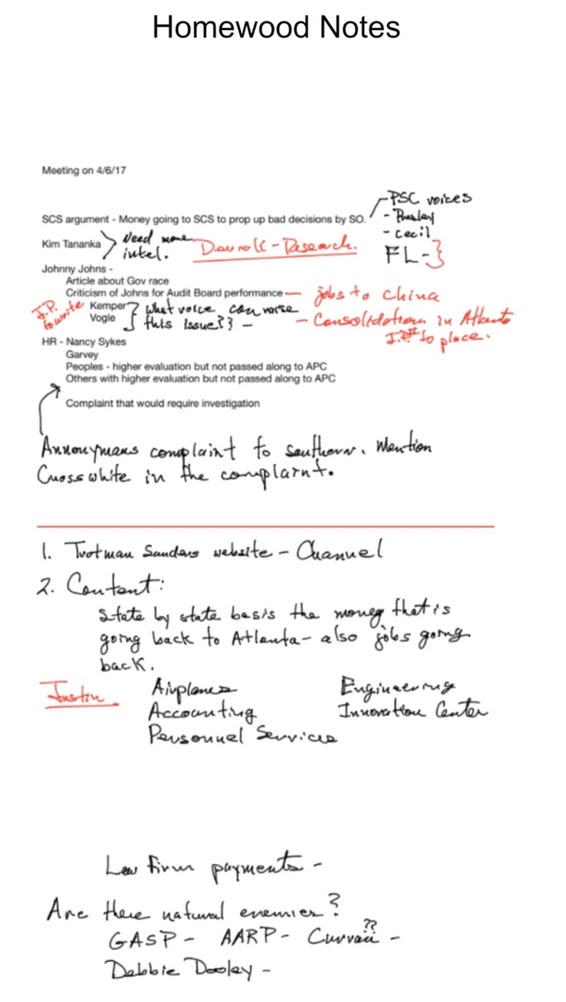 Homewood Notes
Meeting on 4/6/17
SCS argument - Money going to SCS to prop up bad decisions by SO.
- PSC voices
- Presley
- Cecil
FL-}
Kim Tananka
Need more
intel.
Research.
Johnny Johns -
Article about Gov race
Criticism of Johns for Audit Board performance
- jobs to china
J.P.
to write
Kemper
Vogle
what voice can raise
this issue?? -
- Consolidation in Atlanta
to place.
HR - Nancy Sykes
Garvey
Peoples - higher evaluation but not passed along to APC
Others with higher evaluation but not passed along to APC
Complaint that would require investigation
Annonymans complaint to southern. Mention
Crosswhite in the complaint.
1. Trotman Sanders website - Channel
2. Content:
State by state basis the money that is
going back to Atlanta - also jobs going
back.
Justin
Airplanes
Engineering
Accounting
Innovation Center
Personnel Services
Law firm payments -
Are there natural enemies?
??
GASP - AARP - Curran -
Debbie Dooley -